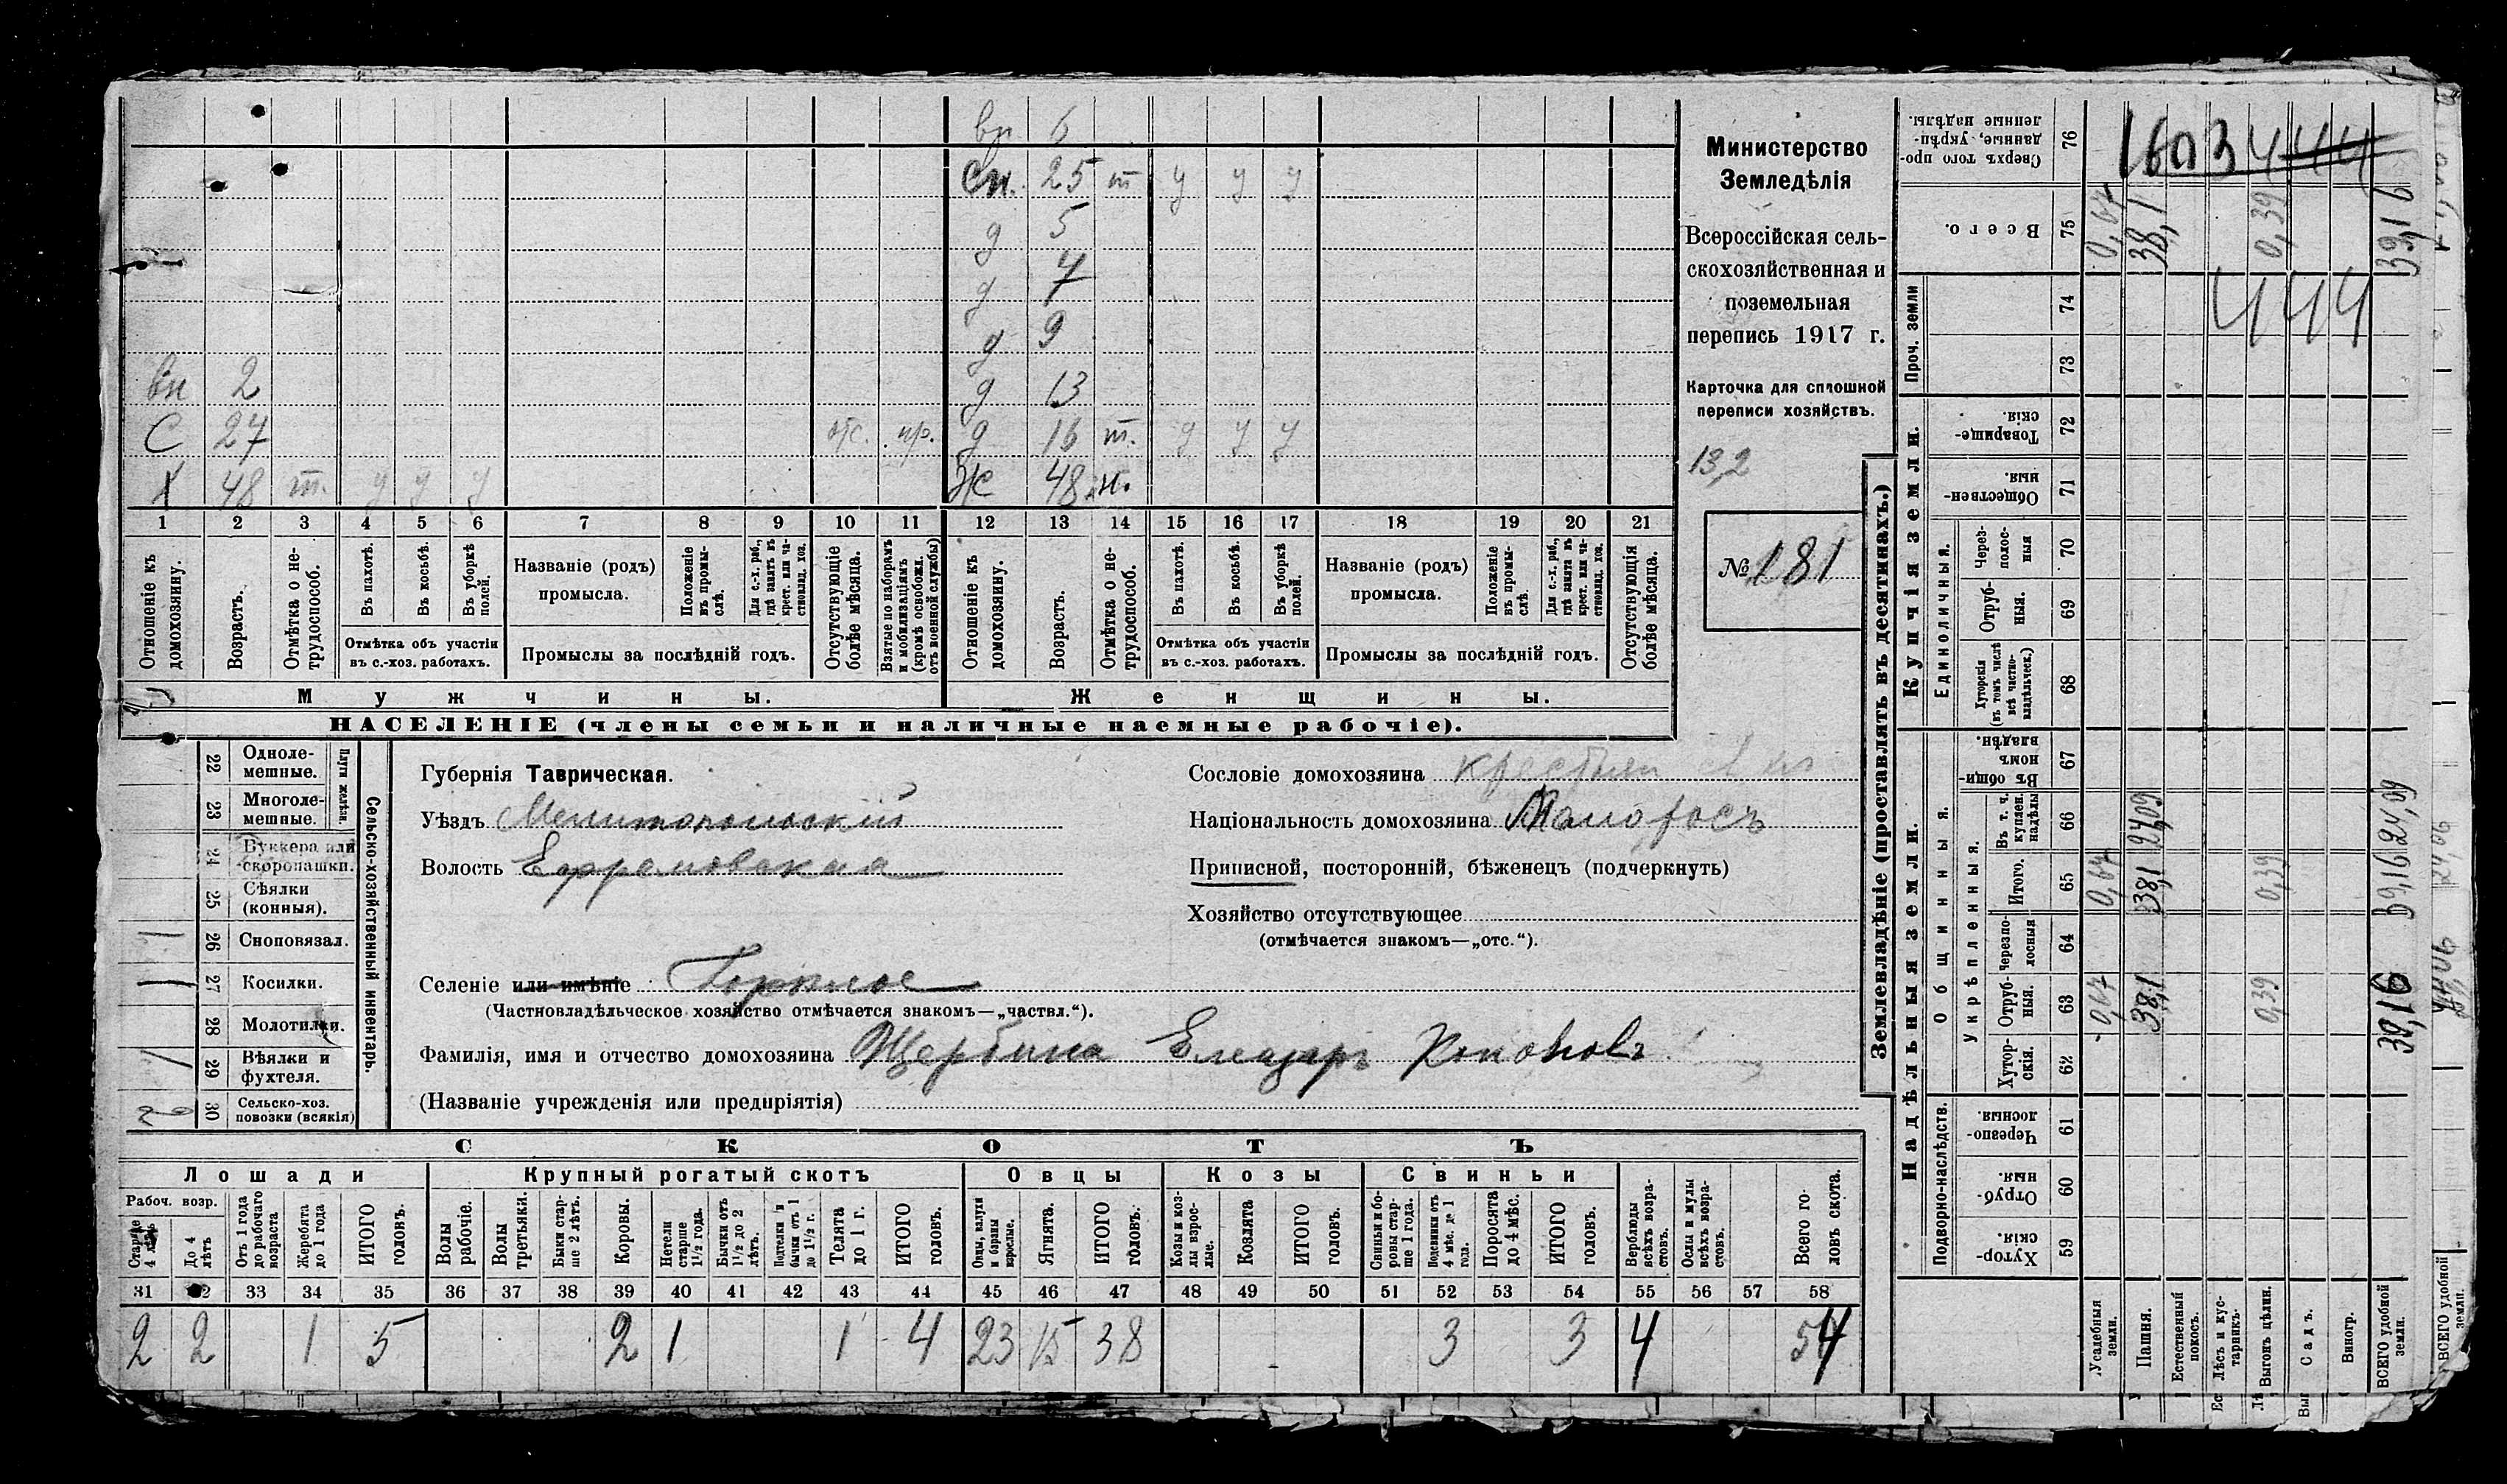 вн 6
Сн. 25 т у у у
д 5
д 7
д 9
вн 2 д 13
С 27 отс. пр. д 16 т. у у у
Х 48 т. у у у Ж 48 н.
1 2 3 4 5 6 7 8 9 10 11 12 13 14 15 16 17 18 19 20 21
Отношеніе къ домохозяину.
Возрастъ.
Отмѣтка о нетрудоспособ.
Въ пахотѣ.
Въ косьбѣ.
Въ уборкѣ полей.
Отмѣтка объ участіи въ с.-хоз. работахъ.
Названіе (родъ) промысла.
Положеніе въ промыслѣ.
Для с.-х. раб., гдѣ занятъ въ крест. или частновлад. хоз.
Промыслы за послѣдній годъ.
Отсутствующіе болѣе мѣсяца.
Взятые по наборамъ и мобилизаціямъ (кромѣ освобожд. отъ военной службы)
Отношеніе къ домохозяину.
Возрастъ.
Отмѣтка о нетрудоспособ.
Въ пахотѣ.
Въ косьбѣ.
Въ уборкѣ полей.
Отмѣтка объ участіи въ с.-хоз. работахъ.
Названіе (родъ) промысла.
Положеніе въ промыслѣ.
Для с.-х. раб., гдѣ занята въ крест. или частновлад. хоз.
Промыслы за послѣдній годъ.
Отсутствующія болѣе мѣсяца.
Мужчины. Женщины.
НАСЕЛЕНІЕ (члены семьи и наличные наемные рабочіе).
Министерство
Земледѣлія
Всероссійская сель-
скохозяйственная и
поземельная
перепись 1917 г.
Карточка для сплошной
переписи хозяйствъ.
13,2
№ 181
Сельско-хозяйственный инвентарь.
Плуги желѣзн.
22 Одноле-
мешные.
23 Многоле-
мешные.
24 Буккера или
скоропашки.
25 Сѣялки
(конныя).
1 26 Сноповязал.
1 27 Косилки.
28 Молотилки.
1 29 Вѣялки и
фухтеля.
2 30 Сельско-хоз.
повозки (всякія)
Губернія Таврическая.
Уѣздъ Мелитопольскій
Волость Ефремовская
Селеніе или имѣніе Горькое
(Частновладѣльческое хозяйство отмѣчается знакомъ—„частвл.“).
Фамилія, имя и отчество домохозяина Щербина Елизаръ Кононовъ
(Названіе учрежденія или предпріятія)
Сословіе домохозяина крестьян
Національность домохозяина Малоросъ
Приписной, посторонній, бѣженецъ (подчеркнуть)
Хозяйство отсутствующее
(отмѣчается знакомъ—„отс.“).
СКОТЪ
Лошади Крупный рогатый скотъ Овцы Козы Свиньи
Рабоч. возр.
Старше 4 лѣтъ
До 4 лѣтъ
Отъ 1 года до рабочаго возраста
Жеребята до 1 года
ИТОГО головъ.
Волы рабочіе.
Волы третьяки.
Быки старше 2 лѣтъ.
Коровы.
Нетели старше 1½ года.
Бычки отъ 1½ до 2 лѣтъ.
Подтелки и бычки отъ 1 до 1½ г.
Телята до 1 г.
ИТОГО головъ.
Овцы, валухи и бараны взрослые.
Ягнята.
ИТОГО головъ.
Козы и козлы взрослые.
Козлята
ИТОГО головъ.
Свиньи и боровы старше 1 года.
Подсвинки отъ 4 мѣс. до 1 года.
Поросята до 4 мѣс.
ИТОГО головъ.
Верблюды всѣхъ возрастовъ.
Ослы и мулы всѣхъ возрастовъ.
Всего головъ скота.
31 32 33 34 35 36 37 38 39 40 41 42 43 44 45 46 47 48 49 50 51 52 53 54 55 56 57 58
2 2 1 5 2 1 1 4 23 15 38 3 3 4 54
Землевладѣніе (проставлять въ десятинахъ.)
Надѣльныя земли. Купчія земли. Проч. земли
Подворно-наслѣдств.
Общинныя.
Укрѣпленныя.
Единоличныя.
Сверхъ того проданные, укрѣпленные надѣлы. 76
Всего. 75 0,67 38,1 0,39 39,16
74 444
73
Товарищескія. 72
Общественныя. 71
Черезполосныя 70
Отрубныя. 69
Хуторскія (въ томъ числѣ всѣ частновладѣльческ.) 68
Въ общинномъ владѣн. 67
Въ т. ч. куплен. надѣлы 66 24,09 24,09
Итого. 65 0,67 38,1 0,39 39,16
Черезполосныя 64
Отрубныя. 63 0,67 38,1 0,39 39,16
Хуторскія. 62
Черезполосныя. 61
Отрубныя. 60
Хуторскія. 59
Усадебныя земли.
Пашня.
Естественный покосъ.
Лѣсъ и кустарникъ.
Выгонъ цѣлин.
Садъ.
Виногр.
ВСЕГО удобной земли.
ВСЕГО удобной земли.